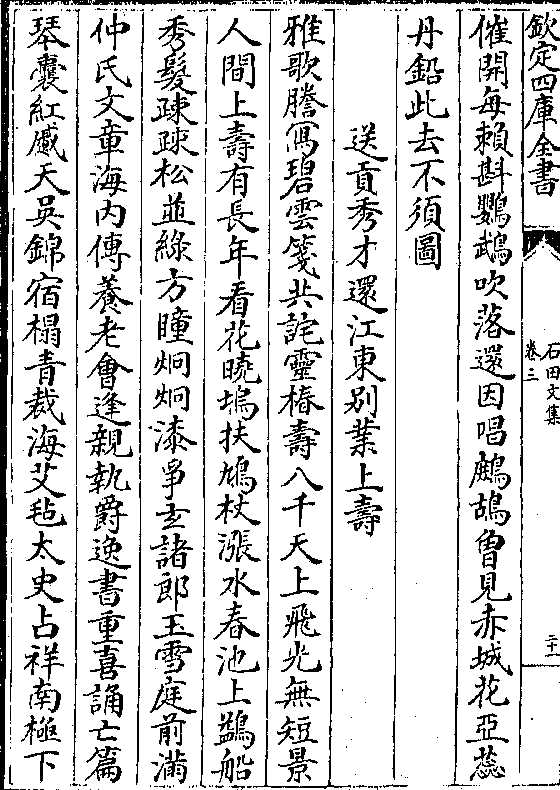 欽定四庫全書
石田文集
卷三
二十一
催開每賴斟鸚鵡吹落還因唱鷓鴣曾見赤城花亞蕊
丹鉛此去不須圖
送貢秀才還江東别業上壽
雅歌謄冩碧雲箋共詫靈椿壽八千天上飛光無短景
人間上壽有長年看花曉塢扶鳩杖漲水春池上鷁船
秀髮踈踈松並綠方瞳炯炯漆爭玄諸郎玉雪庭前滿
仲氏文章海内傳養老會逢親執爵逸書重喜誦亡篇
琴囊紅罽天吳錦宿榻青裁海艾毡太史占祥南極下